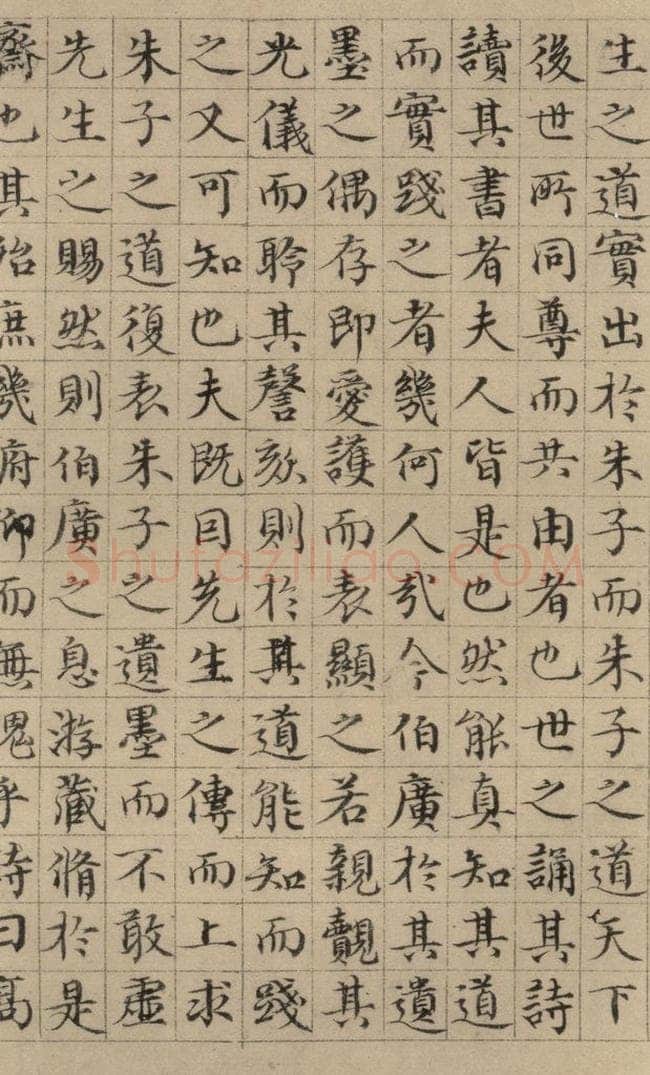 生之道實出於朱子而朱子之道天下
後世所同尊而共由者也世之誦其詩
讀其書者夫人皆是也然能真知其道
而實踐之者幾何人哉今伯廣於其遺
墨之偶存即愛護而表顯之若親覿其
光儀而聆其謦欬則於其道能知而踐
之又可知也夫既因先生之傳而上求
朱子之道復表朱子之遺墨而不敢虛
先生之賜然則伯廣之息游藏脩於是
齋也其殆庶幾俯仰而無愧乎詩曰高
Shufaziliao.COM